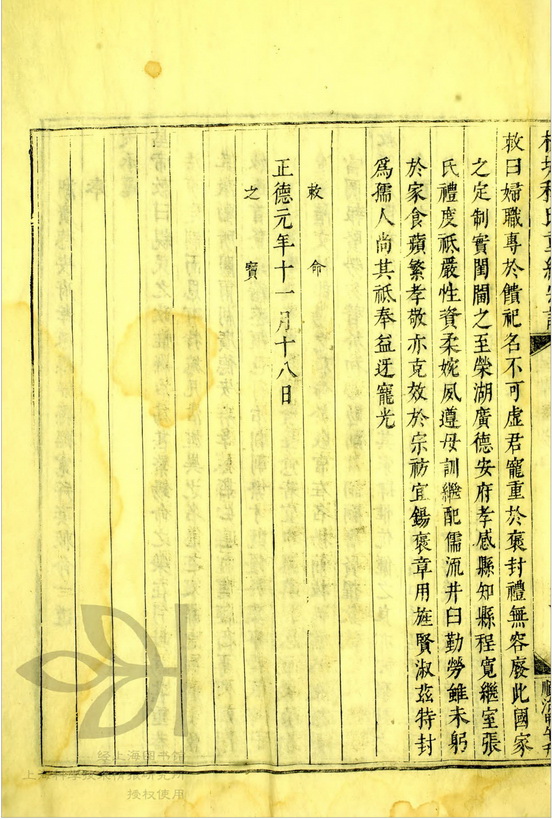 敕曰婦職專於饋祀名不可虛君寵重於褒封禮無容廢此國家
之定制實閨閫之至榮湖廣德安府孝感縣知縣程寬繼室張
氏禮度祗嚴性資柔婉夙遵母訓繼配儒流井臼勤勞雖未躬
於家食蘋蘩孝敬亦克效於宗祊宜錫褒章用旌賢淑茲特封
為孺人尚其祗奉益迓寵光
敕命
正德元年十一月十八日
之寶
经上海图书馆
授权使用